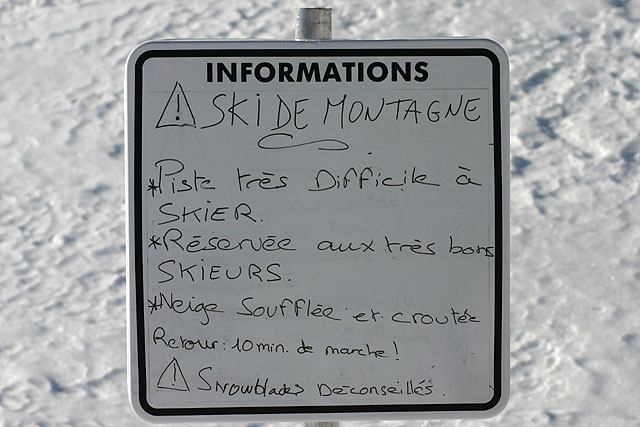 INFORMATIONS
! SKI DE MONTAGNE
*Piste très Difficile à
SKIER.
*Réservée aux très bons
SKIEURS.
*Neige Soufflée et croutée
Retour: 10 min. de marche!
! Snowblades Déconseillés.